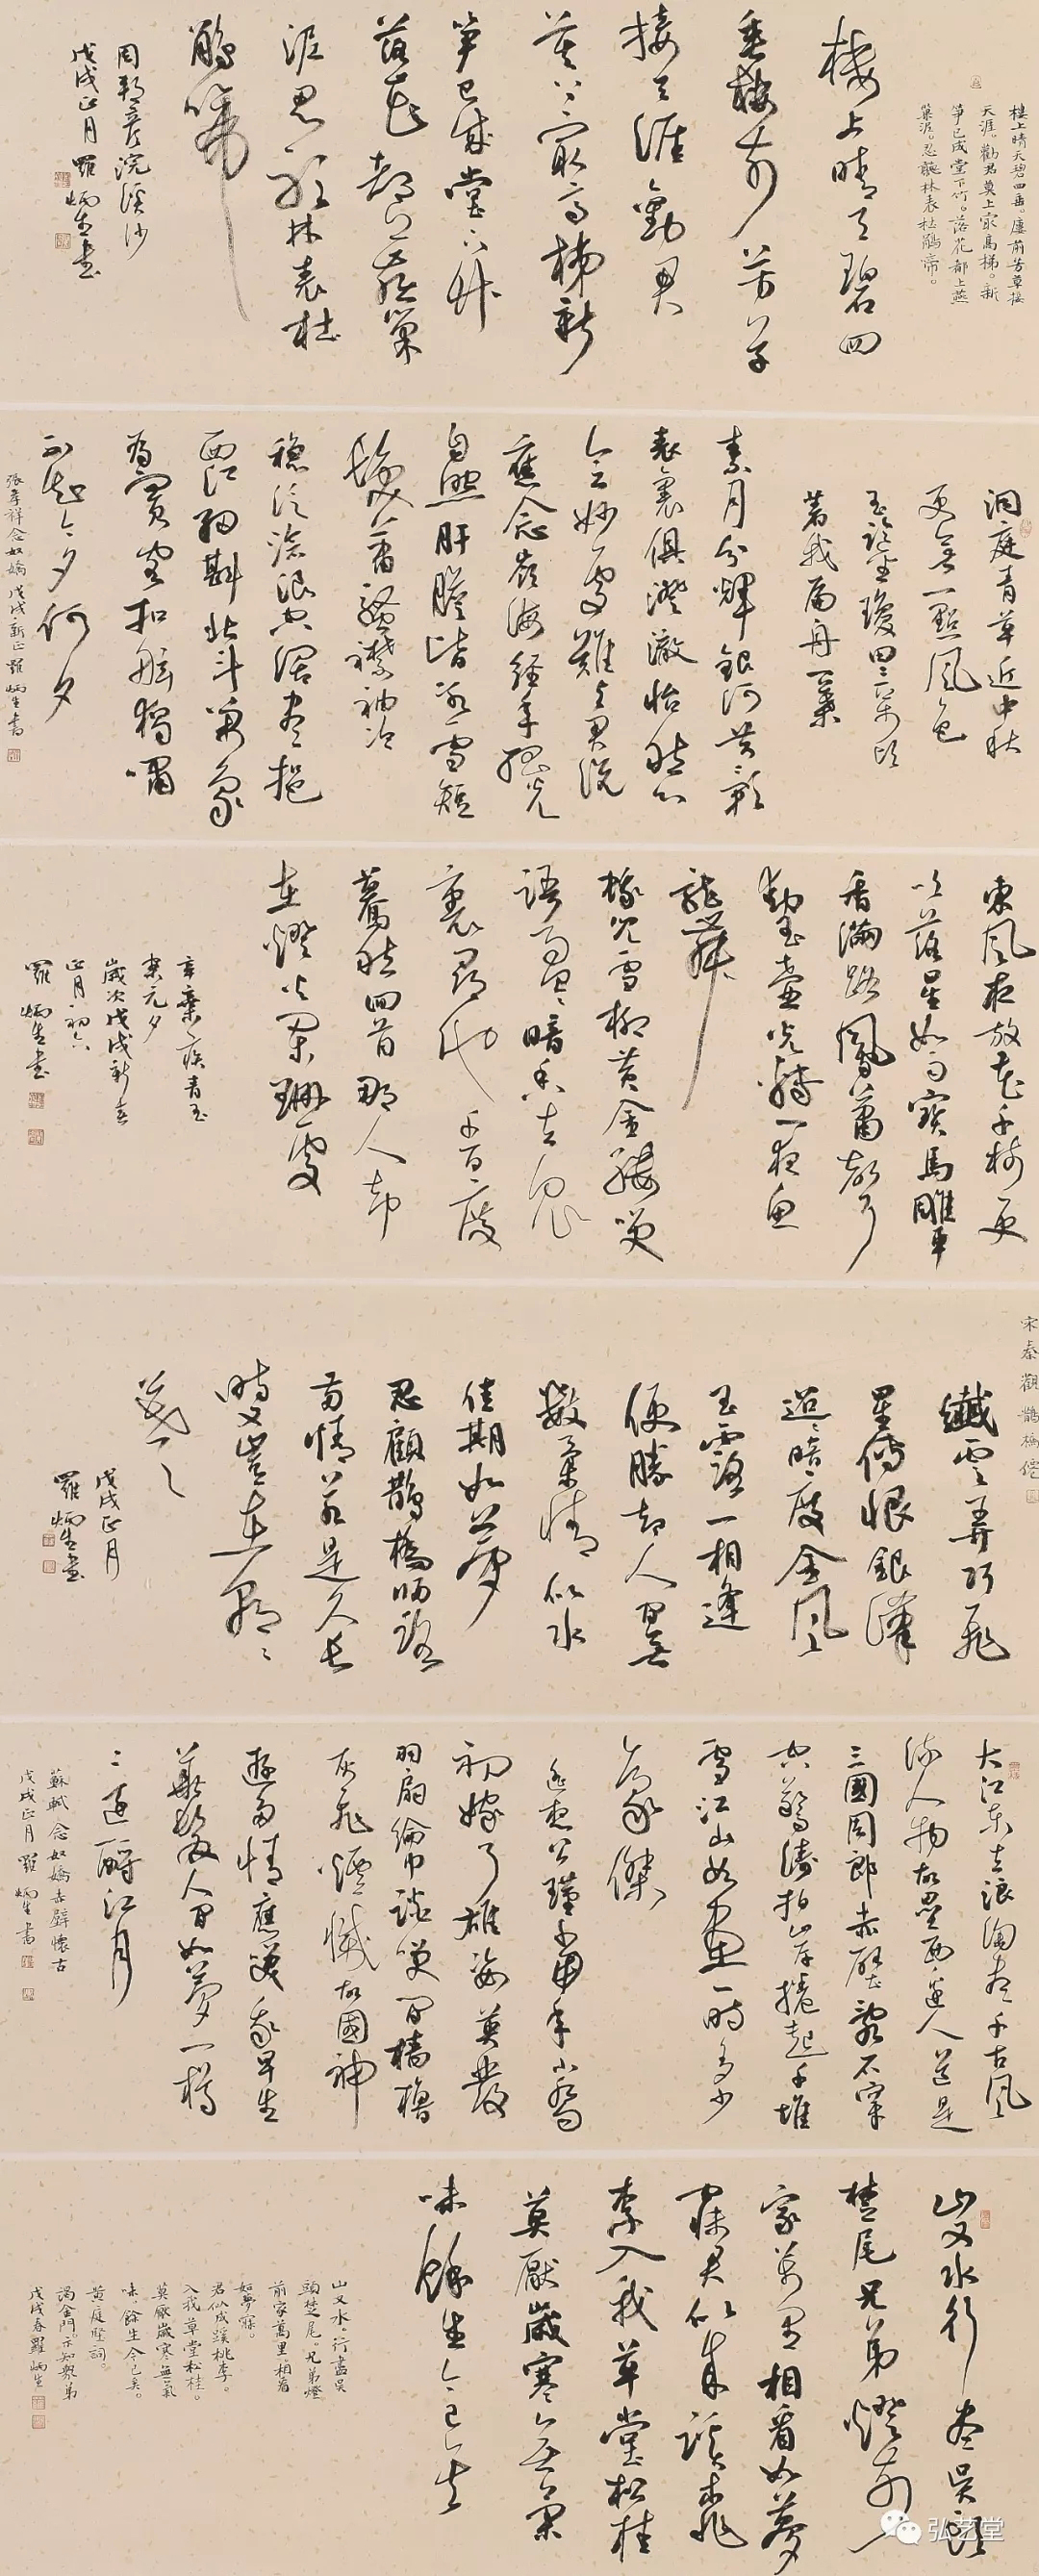 樓上晴天碧四垂。廔前芳草接
天涯。勸君莫上冣高梯。新
笋已成堂下竹。落花都上燕
巢泥。忍聽林表杜鵑啼。
樓上晴天碧四
垂樓前芳草
接天涯勸君
莫上冣高梯新
笋已成堂下竹
落花都上燕巢
泥忍聽林表杜
鵑啼
周邦彥浣溪沙
戊戌正月羅炳生書
洞庭青草近中秋
更無一點風色
玉鑑瓊田三萬頃
著我扁舟一葉
素月分輝銀河共影
表裏俱澄澈怡然心
會妙處難與君說
應念嶺海經年孤光
自照肝膽皆冰雪短
髮蕭騷襟袖冷
穩泛滄浪空闊盡挹
西江細斟北斗萬象
為賓客扣舷獨嘯
不知今夕何夕
張孝祥念奴嬌戊戌新正羅炳生書
東風夜放花千樹更
吹落星如雨寶馬雕車
香滿路鳳簫聲
動玉壺光轉一夜魚
龍舞
蛾兒雪柳黃金縷笑
語盈盈暗香去眾
裏尋他千百度
驀然回首那人卻
在燈火闌珊處
辛棄疾青玉
案元夕
歲次戊戌新春
正月初六
羅炳生書
宋秦觀鵲橋僊
纖雲弄巧飛
星傳恨銀漢
迢迢暗度金風
玉露一相逢
便勝卻人間無
數柔情似水
佳期如夢
忍顧鵲橋歸路
兩情若是久長
時又豈在朝朝
暮暮
戊戌正月
羅炳生書
大江東去浪淘盡千古風
流人物故壘西邊人道是
三國周郎赤壁亂石穿
空驚濤拍岸捲起千堆
雪江山如畫一時多少
豪傑
遙想公瑾當年小喬
初嫁了雄姿英發
羽扇綸巾談笑間檣櫓
灰飛煙滅故國神
遊多情應笑我早生
華髮人間如夢一樽
還酹江月
蘇軾念奴嬌赤壁懷古
戊戌正月羅炳生書
山又水行盡吳頭
楚尾兄弟燈前
家萬里相看如夢
寐君似成蹊桃
李入我草堂松桂
莫厭歲寒無氣
味餘生今已矣
山又水。行盡吳
頭楚尾。兄弟燈
前家萬里相看
如夢寐。
君似成蹊桃李。
入我草堂松桂。
莫厭歲寒無氣
味。餘生今已矣。
黃庭堅詞。
謁金門。示知命弟
戊戌春羅炳生
弘艺堂